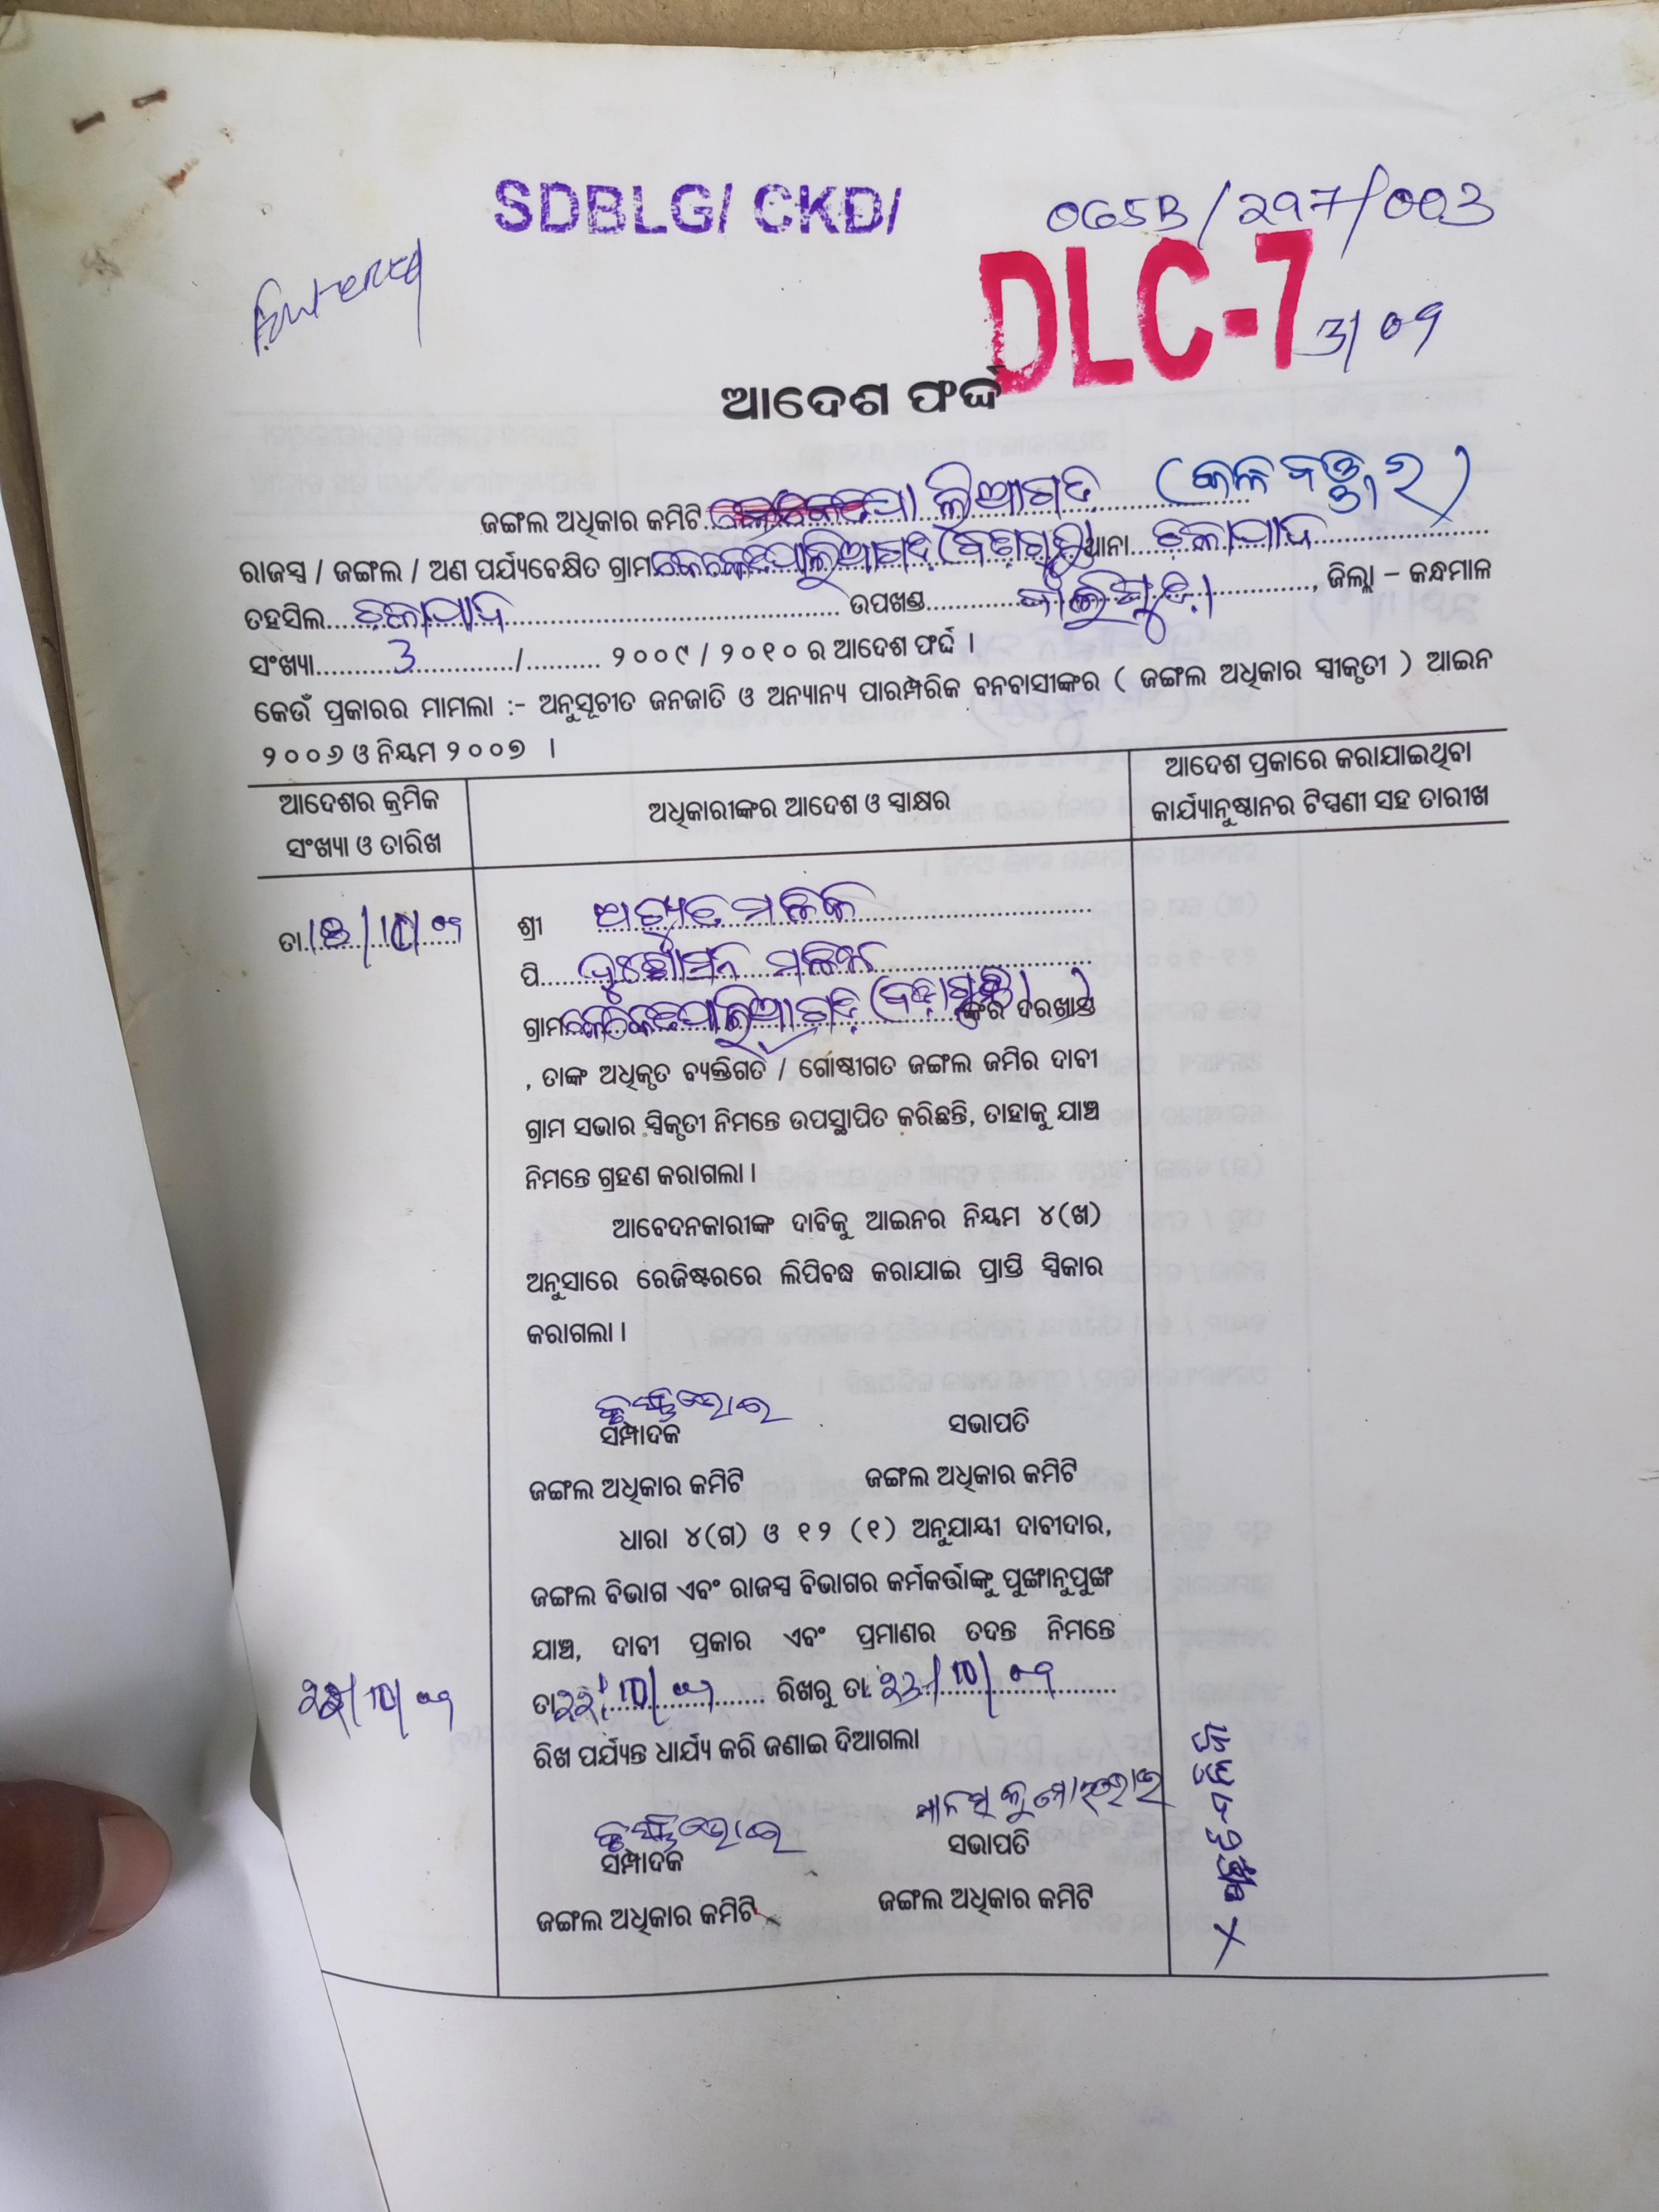 SDBLG/ CKD/ 065B/297/003
Entered
DLC-7
3/09
ଆଦେଶ ଫର୍ଦ୍ଦ
ଜଙ୍ଗଲ ଅଧିକାର କମିଟି
ରାଜସ୍ୱ / ଜଙ୍ଗଲ / ଅଣ ପର୍ଯ୍ୟବେକ୍ଷିତ ଗ୍ରାମ ଥାନା ଚକାପାଦ
ତହସିଲ ଚକାପାଦ ଉପଖଣ୍ଡ , ଜିଲ୍ଲା – କନ୍ଧମାଳ
ସଂଖ୍ୟା 3 / ୨୦୦୯ / ୨୦୧୦ ର ଆଦେଶ ଫର୍ଦ୍ଦ ।
କେଉଁ ପ୍ରକାରର ମାମଲା :- ଅନୁସୂଚୀତ ଜନଜାତି ଓ ଅନ୍ୟାନ୍ୟ ପାରମ୍ପରିକ ବନବାସୀଙ୍କର ( ଜଙ୍ଗଲ ଅଧିକାର ସ୍ୱୀକୃତୀ ) ଆଇନ
୨୦୦୬ ଓ ନିୟମ ୨୦୦୭ ।
ଆଦେଶର କ୍ରମିକ
ସଂଖ୍ୟା ଓ ତାରିଖ
ଅଧିକାରୀଙ୍କର ଆଦେଶ ଓ ସ୍ୱାକ୍ଷର
ଆଦେଶ ପ୍ରକାରେ କରାଯାଇଥିବା
କାର୍ଯ୍ୟାନୁଷ୍ଠାନର ଟିପ୍ପଣୀ ସହ ତାରୀଖ
ତା
ଶ୍ରୀ ଅଚ୍ୟୁତ ମଳିକ
ପି ମଳିକ
ଗ୍ରାମ ଙ୍କର ଦରଖାସ୍ତ
, ତାଙ୍କ ଅଧିକୃତ ବ୍ୟକ୍ତିଗତ / ଗୋଷ୍ଠୀଗତ ଜଙ୍ଗଲ ଜମିର ଦାବୀ
ଗ୍ରାମ ସଭାର ସ୍ୱିକୃତୀ ନିମନ୍ତେ ଉପସ୍ଥାପିତ କରିଛନ୍ତି, ତାହାକୁ ଯାଞ୍ଚ
ନିମନ୍ତେ ଗ୍ରହଣ କରାଗଲା ।
ଆବେଦନକାରୀଙ୍କ ଦାବିକୁ ଆଇନର ନିୟମ ୪(ଖ)
ଅନୁସାରେ ରେଜିଷ୍ଟରରେ ଲିପିବଦ୍ଧ କରାଯାଇ ପ୍ରାପ୍ତି ସ୍ୱିକାର
କରାଗଲା ।
ସମ୍ପାଦକ ସଭାପତି
ଜଙ୍ଗଲ ଅଧିକାର କମିଟି ଜଙ୍ଗଲ ଅଧିକାର କମିଟି
ଧାରା ୪(ଗ) ଓ ୧୨ (୧) ଅନୁଯାୟୀ ଦାବୀଦାର,
ଜଙ୍ଗଲ ବିଭାଗ ଏବଂ ରାଜସ୍ୱ ବିଭାଗର କର୍ମକର୍ତ୍ତାଙ୍କୁ ପୁଙ୍ଖାନୁପୁଙ୍ଖ
ଯାଞ୍ଚ, ଦାବୀ ପ୍ରକାର ଏବଂ ପ୍ରମାଣର ତଦନ୍ତ ନିମନ୍ତେ
ତା ୨୨/10/୦୯ ରିଖରୁ ତା ୨୨/10/୦୯
ରିଖ ପର୍ଯ୍ୟନ୍ତ ଧାର୍ଯ୍ୟ କରି ଜଣାଇ ଦିଆଗଲା
ସମ୍ପାଦକ ସଭାପତି
ଜଙ୍ଗଲ ଅଧିକାର କମିଟି ଜଙ୍ଗଲ ଅଧିକାର କମିଟି